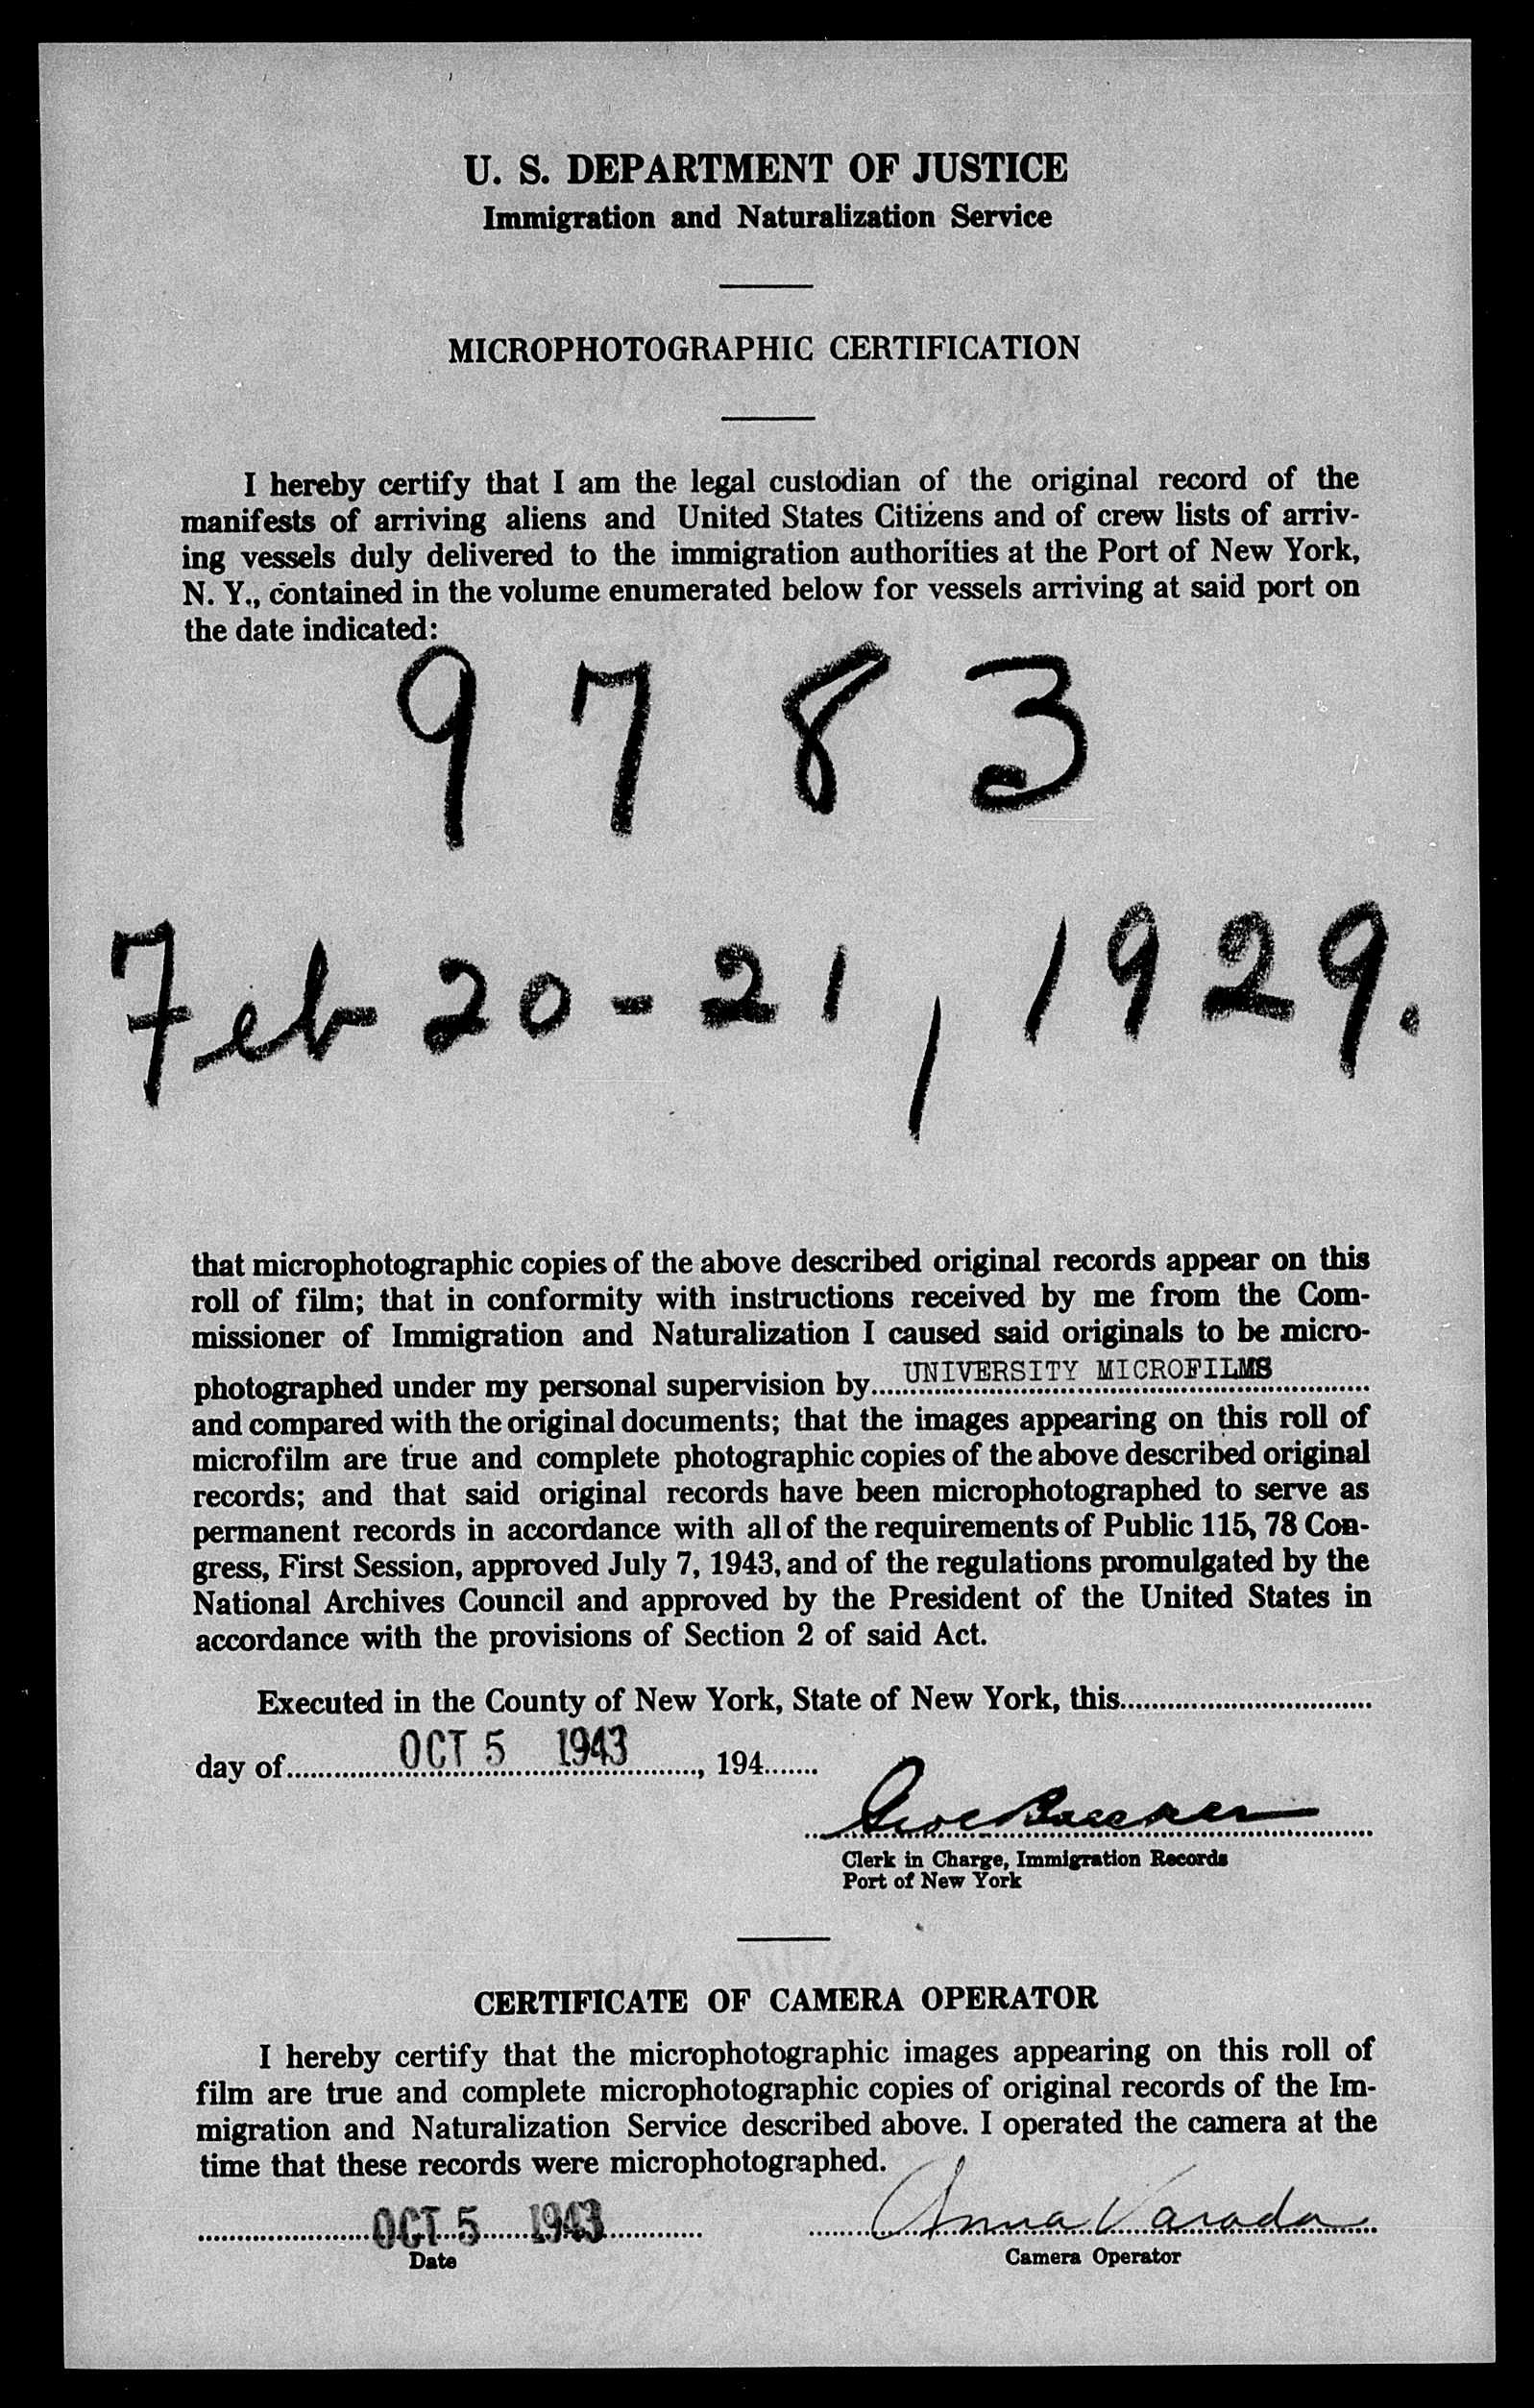 U. S. DEPARTMENT OF JUSTICE
Immigration and Naturalization Service
MICROPHOTOGRAPHIC CERTIFICATION
I hereby certify that I am the legal custodian of the original record of the
manifests of arriving aliens and United States Citizens and of crew lists of arriv-
ing vessels duly delivered to the immigration authorities at the Port of New York,
N. Y., contained in the volume enumerated below for vessels arriving at said port on
the date indicated:
9783
Feb 20-21, 1929.
that microphotographic copies of the above described original records appear on this
roll of film; that in conformity with instructions received by me from the Com-
missioner of Immigration and Naturalization I caused said originals to be micro-
photographed under my personal supervision by UNIVERSITY MICROFILMS
and compared with the original documents; that the images appearing on this roll of
microfilm are true and complete photographic copies of the above described original
records; and that said original records have been microphotographed to serve as
permanent records in accordance with all of the requirements of Public 115, 78 Con-
gress, First Session, approved July 7, 1943, and of the regulations promulgated by the
National Archives Council and approved by the President of the United States in
accordance with the provisions of Section 2 of said Act.
Executed in the County of New York, State of New York, this
day of OCT 5 1943, 194
Clerk in Charge, Immigration Records
Port of New York
CERTIFICATE OF CAMERA OPERATOR
I hereby certify that the microphotographic images appearing on this roll of
film are true and complete microphotographic copies of original records of the Im-
migration and Naturalization Service described above. I operated the camera at the
time that these records were microphotographed.
OCT 5 1943 Anna Varada
Date Camera Operator